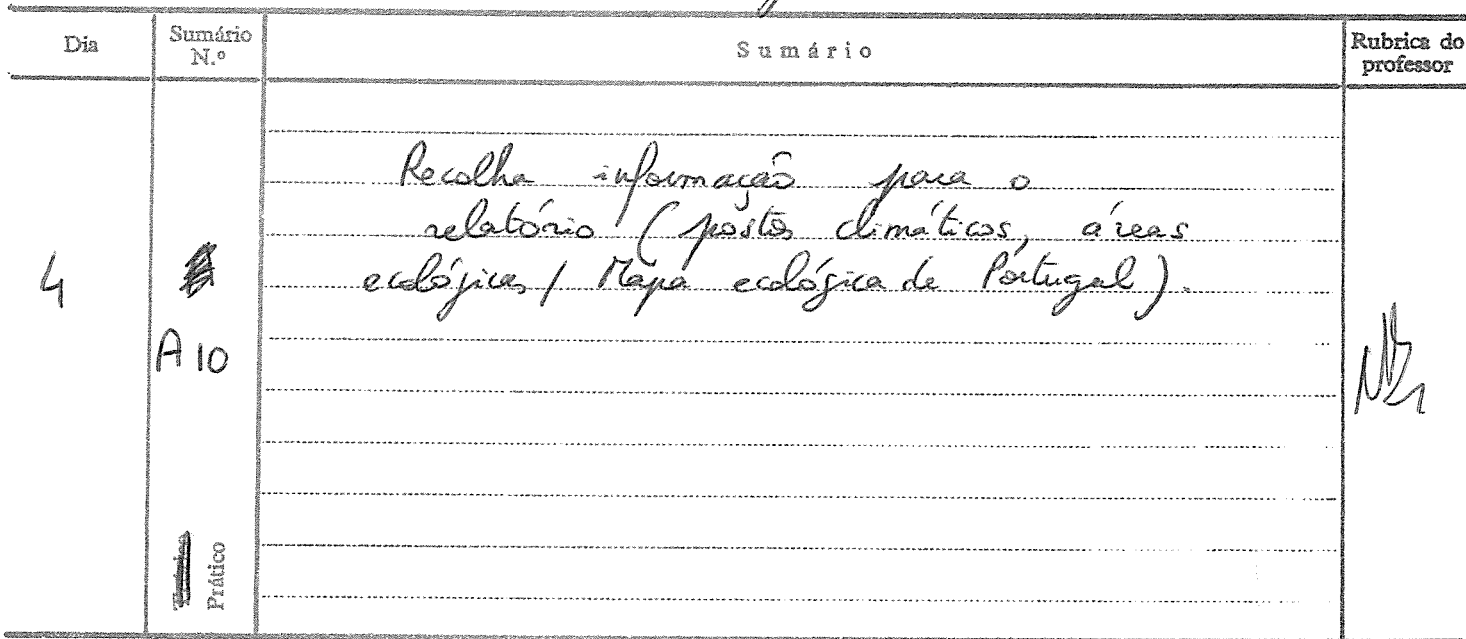 Dia
Sumário
N.º
Sumário
Rubrica do
professor
Recolha informação para o
relatório (postos climáticos, áreas
ecológicas / Mapa ecológica de Portugal).
4
A 10
Prático